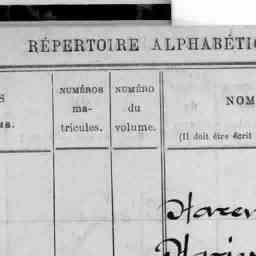 RÉPERTOIRE ALPHABÉTI
NUMÉROS
ma-
tricules.
NUMÉRO
du
volume.
NOM
(Il doit être écrit